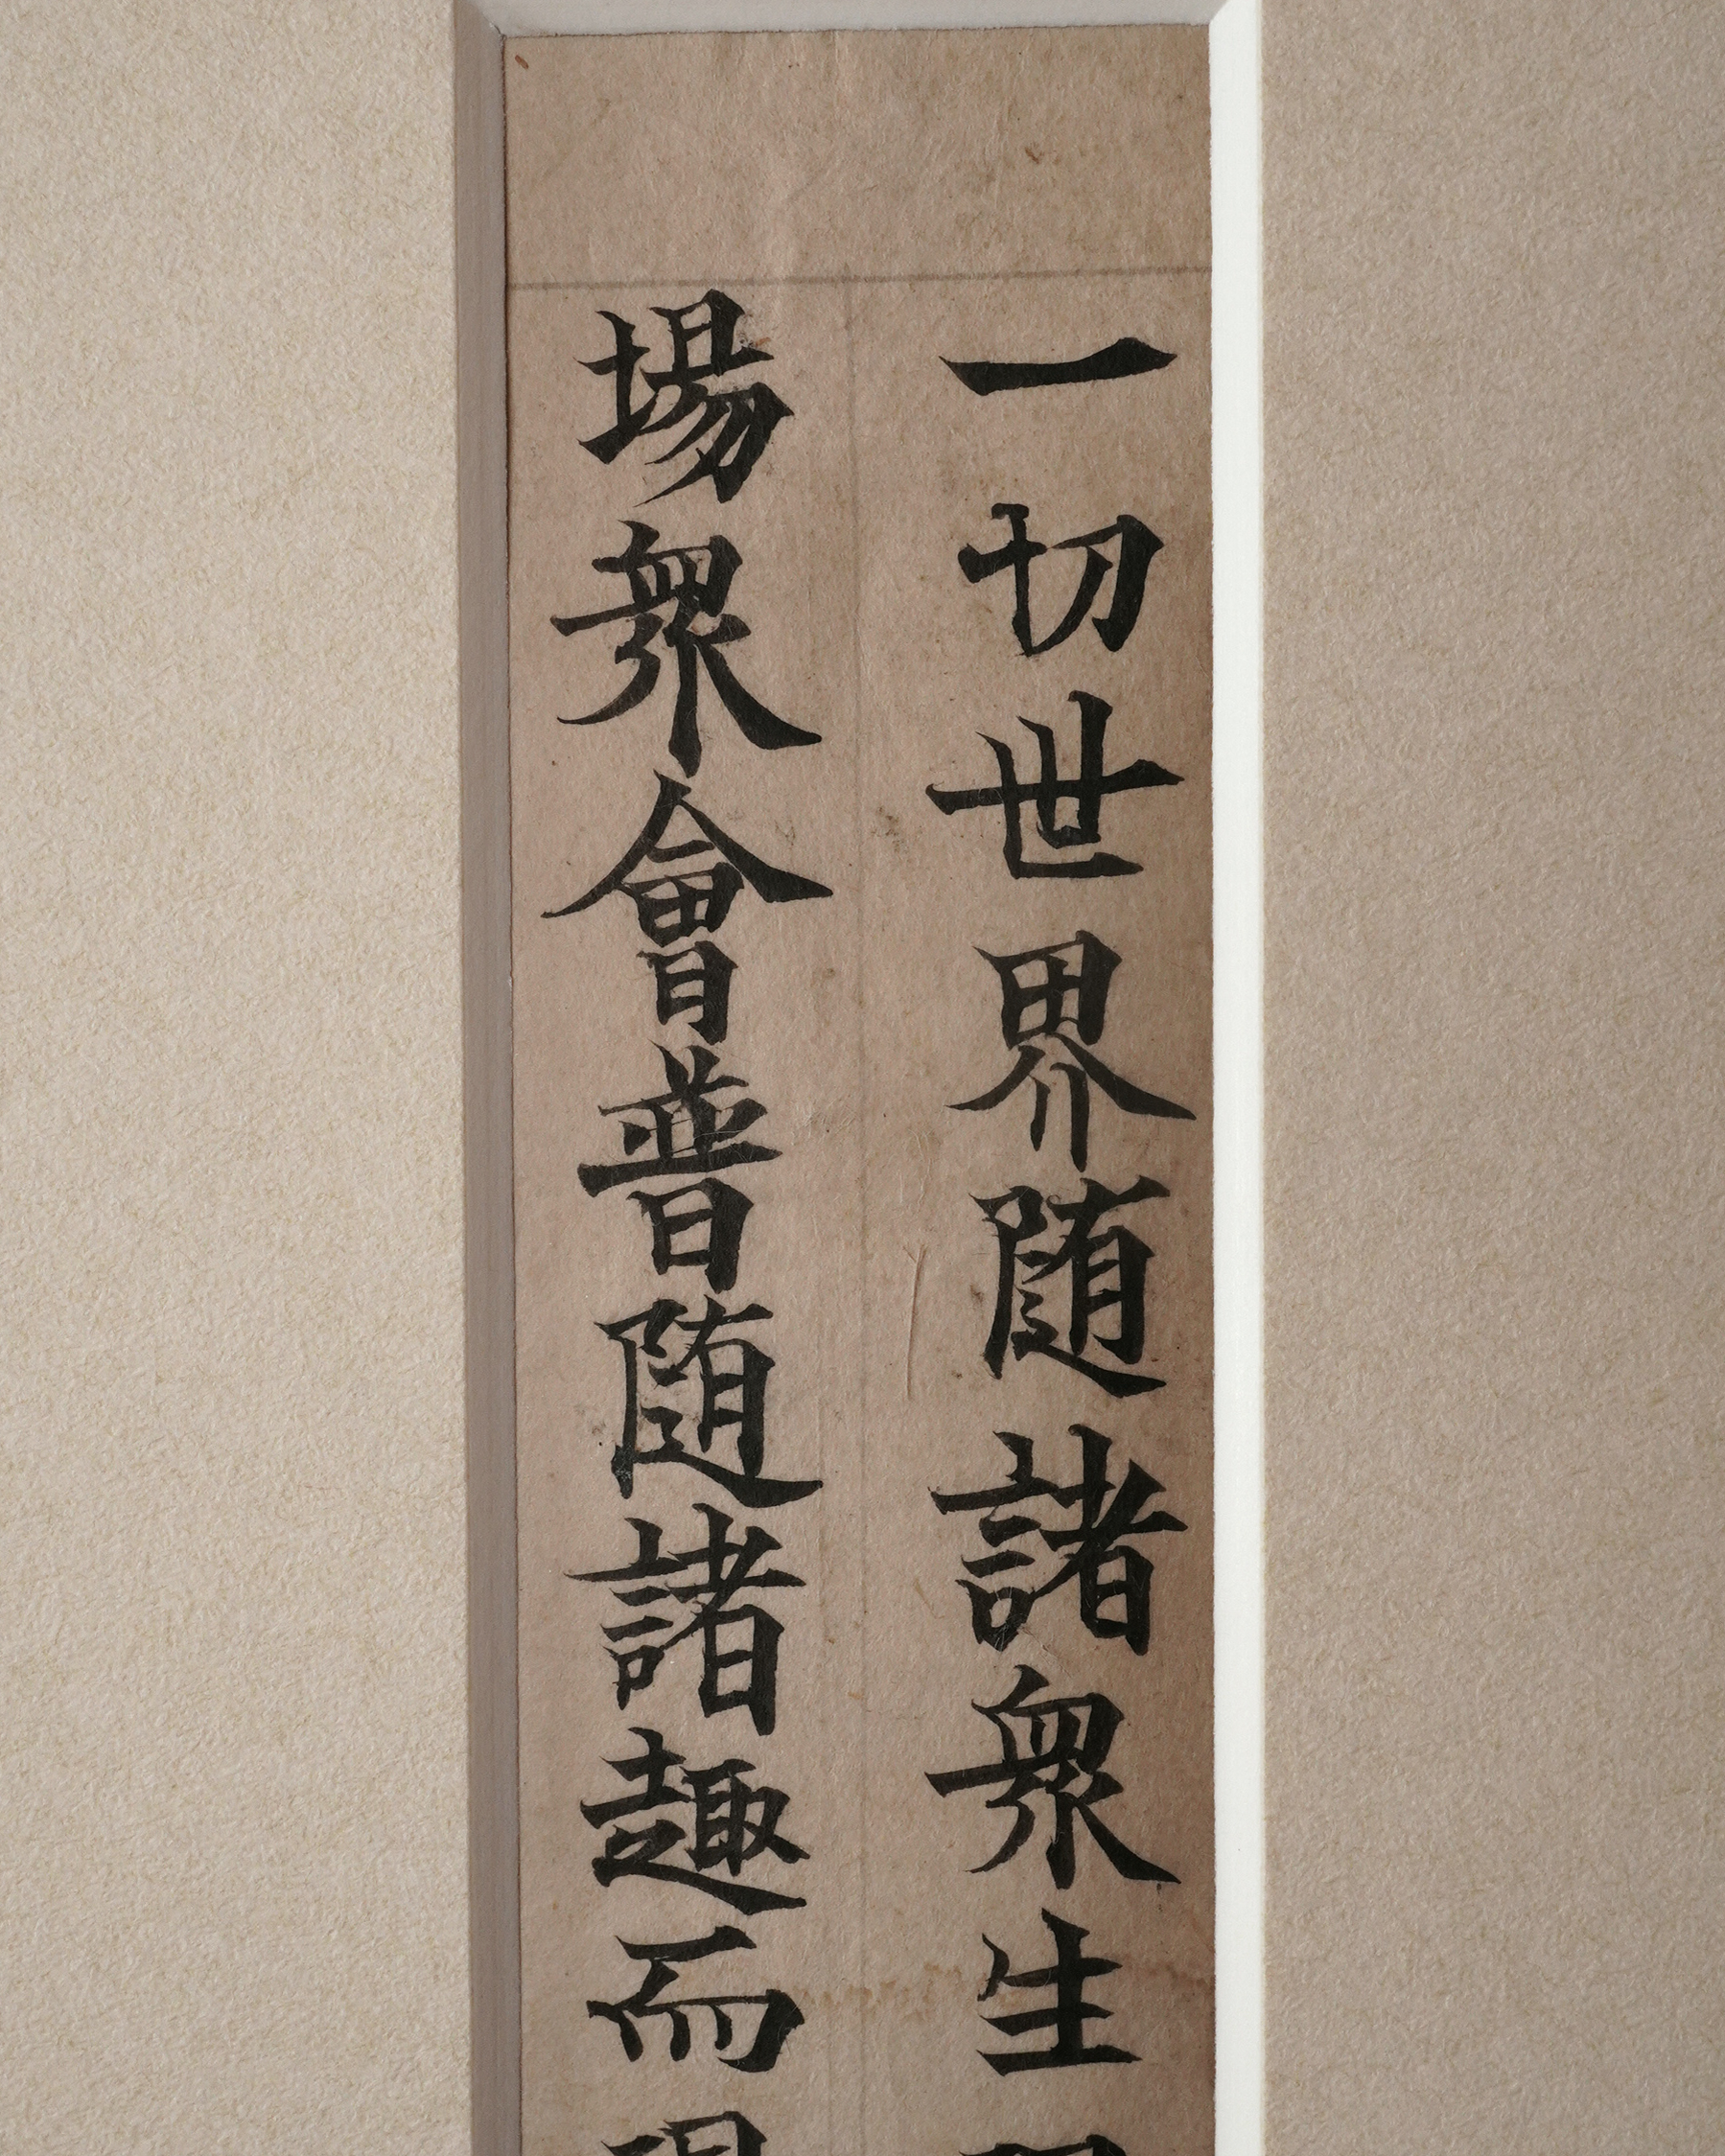 一切世界随諸衆生
場衆會普随諸趣而